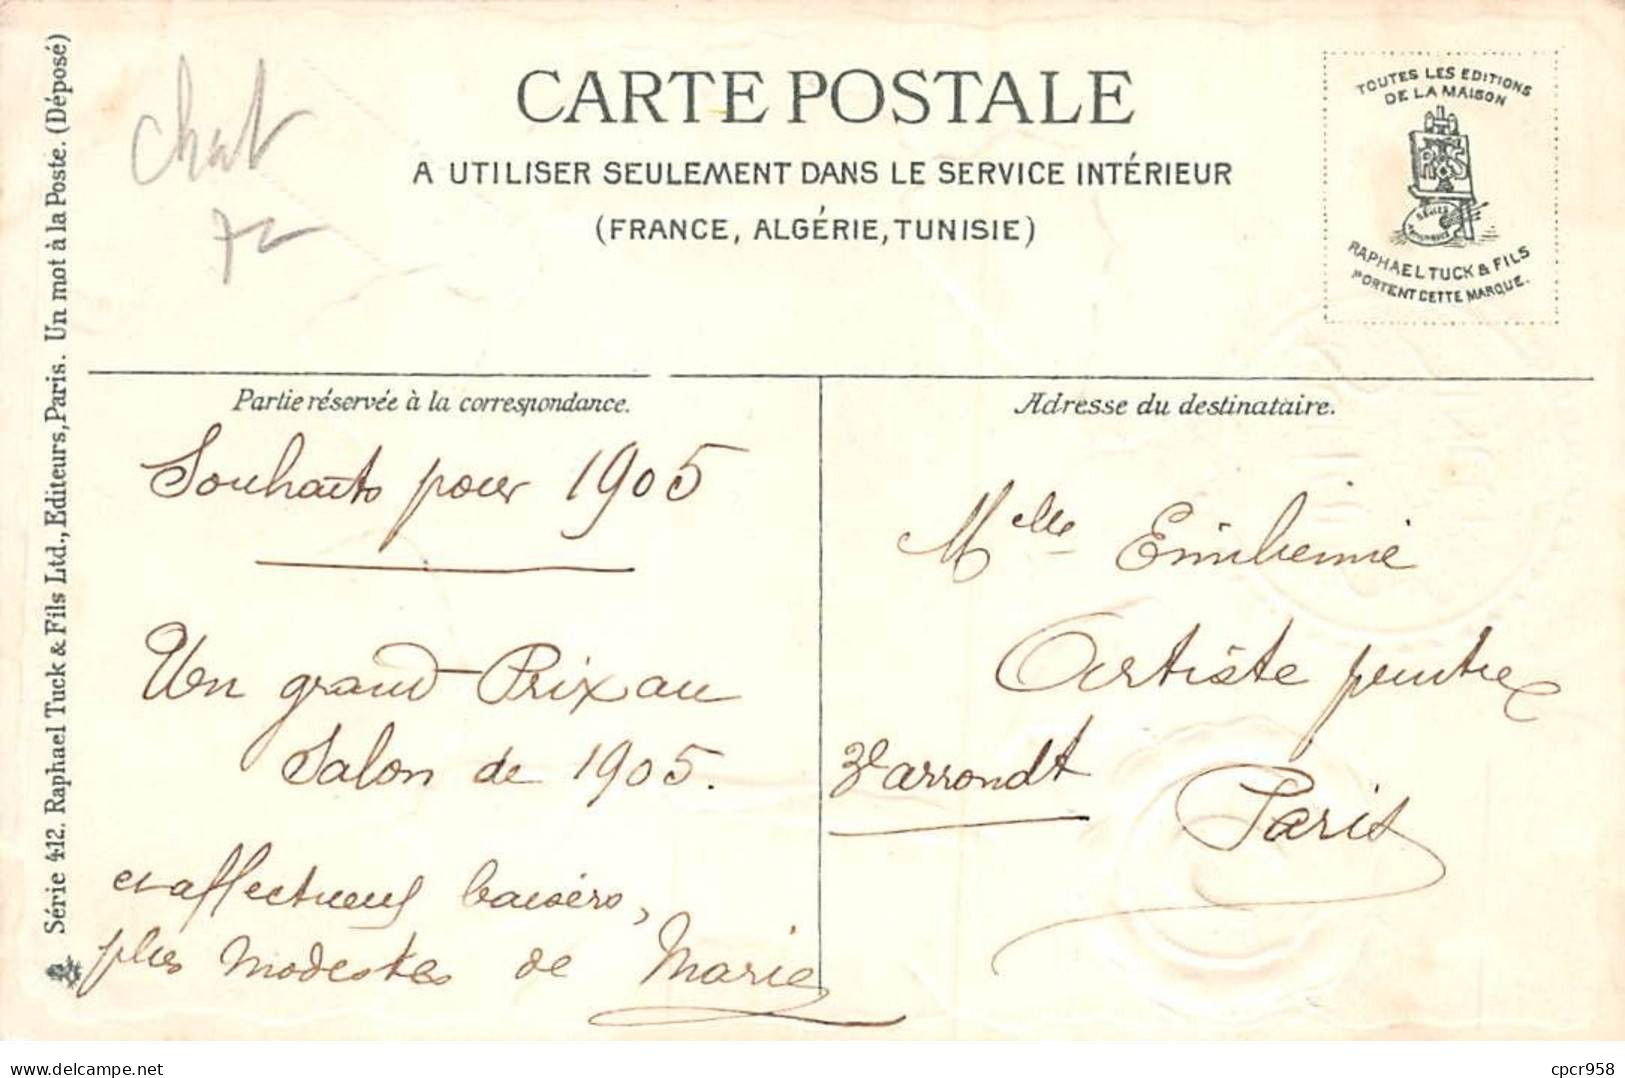 chat
72
CARTE POSTALE
A UTILISER SEULEMENT DANS LE SERVICE INTÉRIEUR
(FRANCE, ALGÉRIE, TUNISIE)
TOUTES LES EDITIONS
DE LA MAISON
RAPHAEL TUCK & FILS
PORTENT CETTE MARQUE.
Série 412. Raphael Tuck & Fils Ltd., Editeurs, Paris. Un mot à la Poste. (Déposé)
Partie réservée à la correspondance.
Souhaits pour 1905
Un grand Prix au
Salon de 1905.
et affectueux baisers,
plus modestes de Marie
Adresse du destinataire.
Mlle
Artiste peintre
3e arrondt
Paris
cpcr958